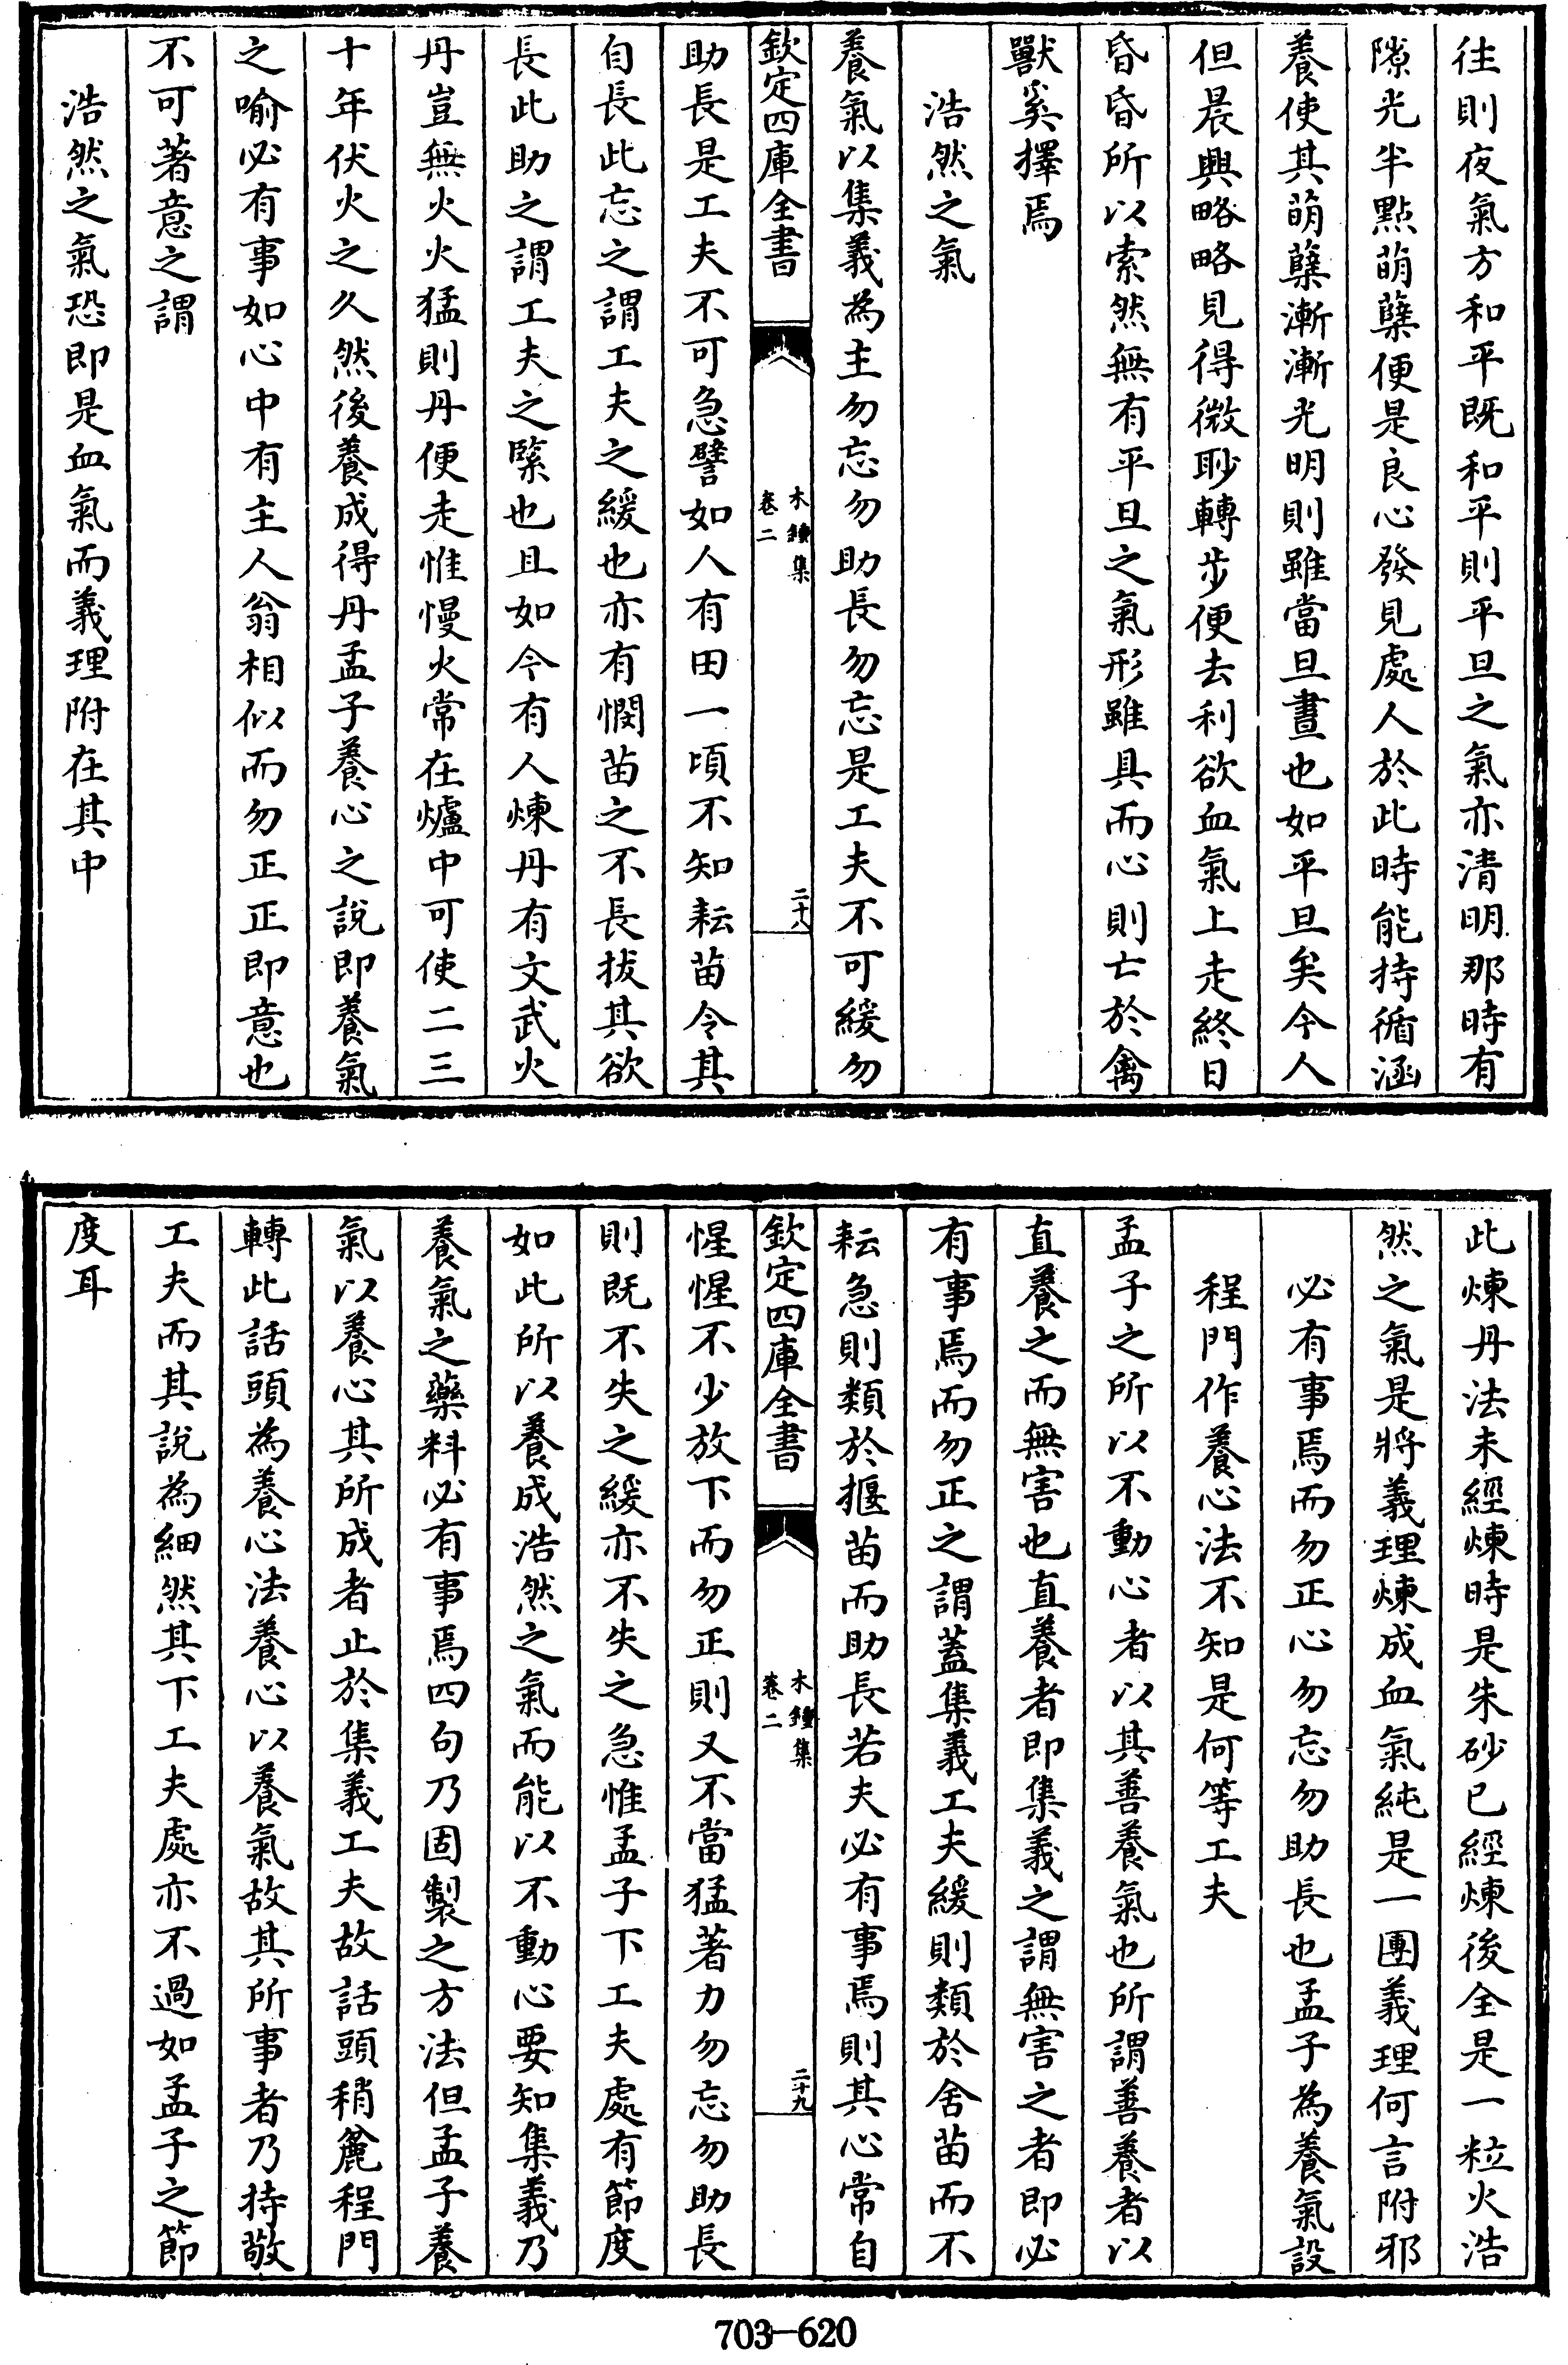 往則夜氣方和平既和平則平旦之氣亦清明那時有
隙光半點萌蘖便是良心發見處人於此時能持循涵
養使其萌蘖漸漸光明則雖當旦晝也如平旦矣今人
但晨興略略見得微眇轉步便去利欲血氣上走終日
昏昏所以索然無有平旦之氣形雖具而心則亡於禽
獸奚擇焉
浩然之氣
養氣以集義為主勿忘勿助長勿忘是工夫不可緩勿
欽定四庫全書
木鍾集
卷二
二十八
助長是工夫不可急譬如人有田一頃不知耘苗令其
自長此忘之謂工夫之緩也亦有憫苗之不長拔其欲
長此助之謂工夫之緊也且如今有人煉丹有文武火
丹豈無火火猛則丹便走惟慢火常在爐中可使二三
十年伏火之久然後養成得丹孟子養心之說即養氣
之喻必有事如心中有主人翁相似而勿正正即意也
不可著意之謂
浩然之氣恐即是血氣而義理附在其中
此煉丹法未經煉時是朱砂已經煉後全是一粒火浩
然之氣是將義理煉成血氣純是一團義理何言附邪
必有事焉而勿正心勿忘勿助長也孟子為養氣設
程門作養心法不知是何等工夫
孟子之所以不動心者以其善養氣也所謂善養者以
直養之而無害也直養者即集義之謂無害之者即必
有事焉而勿正之謂蓋集義工夫緩則類於舍苗而不
耘急則類於揠苗而助長若夫必有事焉則其心常自
欽定四庫全書
木鍾集
卷二
二十九
惺惺不少放下而勿正則又不當猛著力勿忘勿助長
則既不失之緩亦不失之急惟孟子下工夫處有節度
如此所以養成浩然之氣而能以不動心要知集義乃
養氣之藥料必有事焉四句乃固製之方法但孟子養
氣以養心其所成者止於集義工夫故話頭稍麄程門
轉此話頭為養心法養心以養氣故其所事者乃持敬
工夫而其說為細然其下工夫處亦不過如孟子之節
度耳
703-620